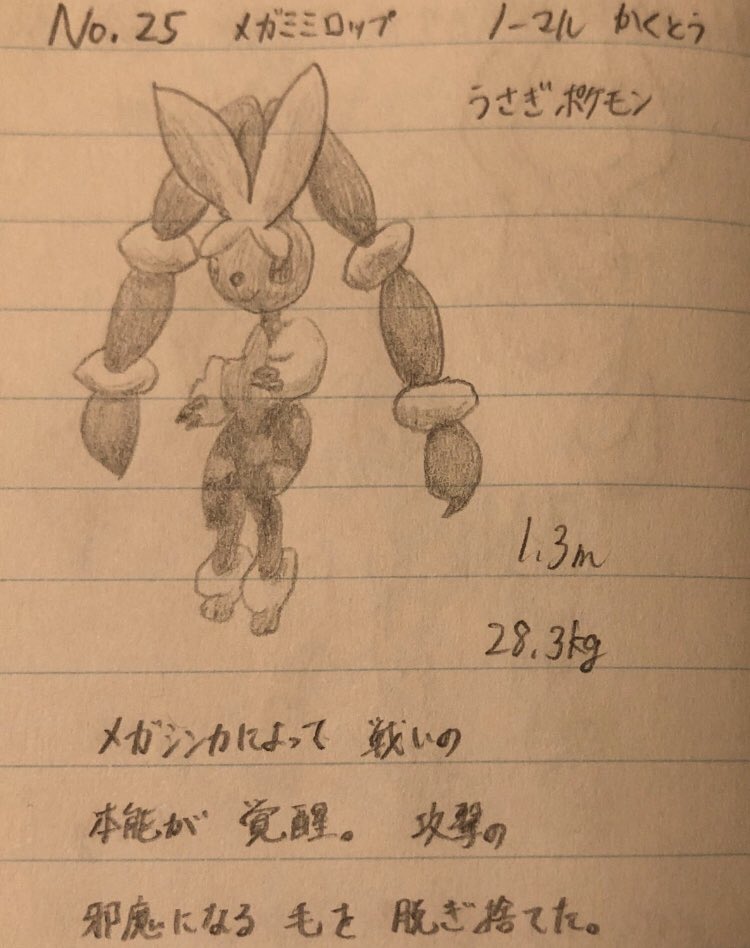 No.25 メガミミロップ ノーマル かくとう
うさぎポケモン
1.3m
28.3kg
メガシンカによって 戦いの
本能が 覚醒。 攻撃の
邪魔になる 毛を 脱ぎ捨てた。